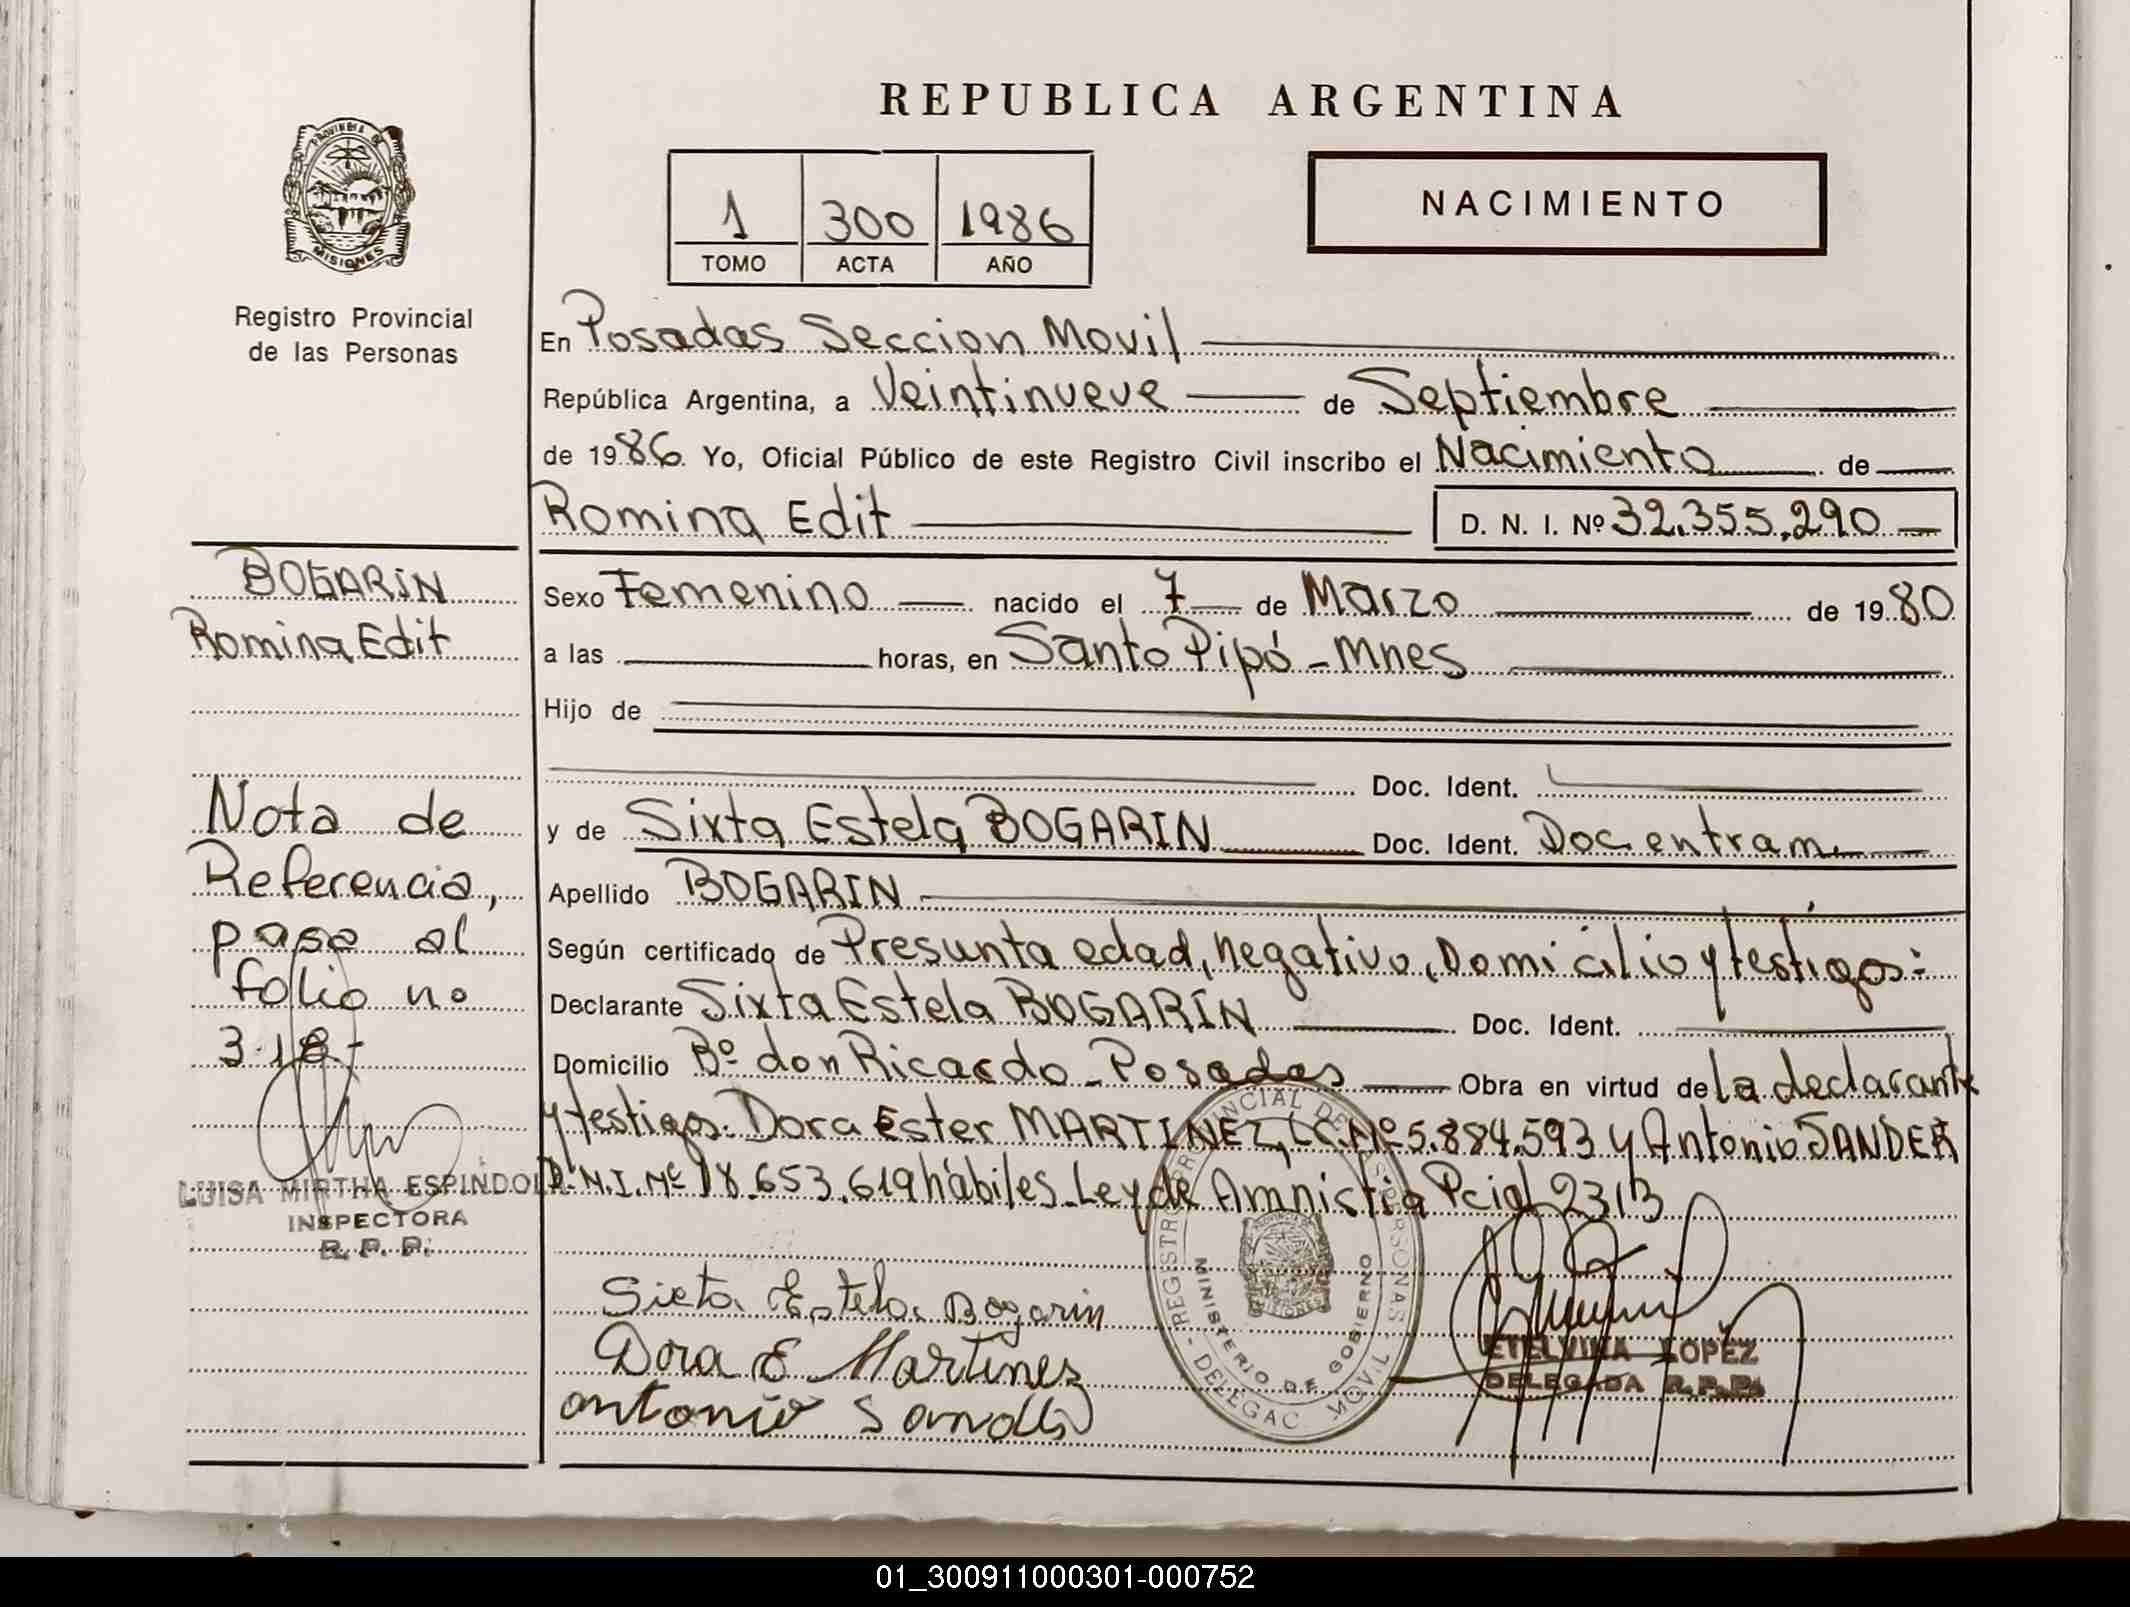 REPUBLICA ARGENTINA
PROVINCIA DE
MISIONES
Registro Provincial
de las Personas
1 300 1986
TOMO ACTA AÑO
NACIMIENTO
En Posadas Seccion Movil
República Argentina, a Veintinueve de Septiembre
de 1986. Yo, Oficial Público de este Registro Civil inscribo el Nacimiento de
Romina Edit D. N. I. Nº 32.355.290
BOGARIN
Romina Edit
Sexo Femenino nacido el 7 de Marzo de 1980
a las horas, en Santo Pipó - Mnes
Hijo de
Doc. Ident.
y de Sixta Estela BOGARIN Doc. Ident. Doc. entram.
Apellido BOGARIN
Según certificado de Presunta edad, negativo, Domicilio y testigos:
Declarante Sixta Estela BOGARIN Doc. Ident.
Domicilio Bº don Ricardo - Posadas Obra en virtud de la declarante
y testigos: Dora Ester MARTINEZ, L.C. Nº 5.884.593 y Antonio SANDER
D.N.I. Nº 18.653.619 hábiles. Ley de Amnistia Pcial 2313
Nota de
Referencia,
pasa al
folio nº
318-
LUISA MIRTHA ESPINDOLA
INSPECTORA
R. P. P.
Sixta Estela Bogarin
Dora E Martinez
antonio Sander
REGISTRO PROVINCIAL DE LAS PERSONAS
MINISTERIO DE GOBIERNO
- DELEGAC. MOVIL
ETELVINA LOPEZ
DELEGADA R.P.P.
01_300911000301-000752